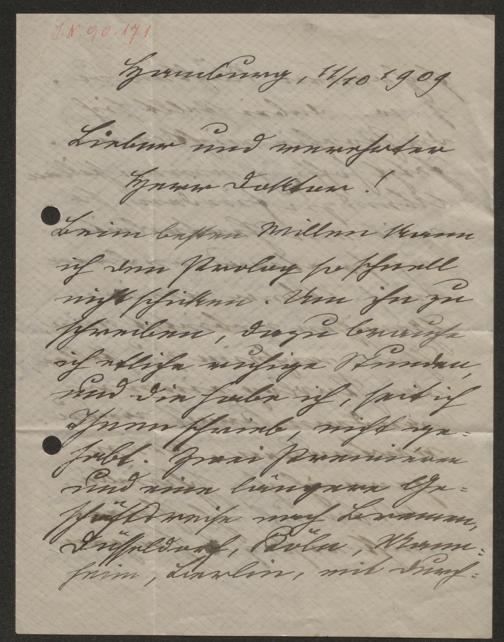 I.N. 90.171
Hamburg, 11/10 1909
Lieber und verehrter
Herr Doktor!
Beim besten Willen kann
ich den Prolog so schnell
nicht schicken. Um ihn zu
schreiben, dazu brauche
ich etliche ruhige Stunden,
und die habe ich, seit ich
Ihnen schrieb, nicht ge-
habt. Zwei Premièren
und eine längere Ge-
schäftsreise nach Bremen,
Düsseldorf, Köln, Mann-
heim, Berlin, mit durch-